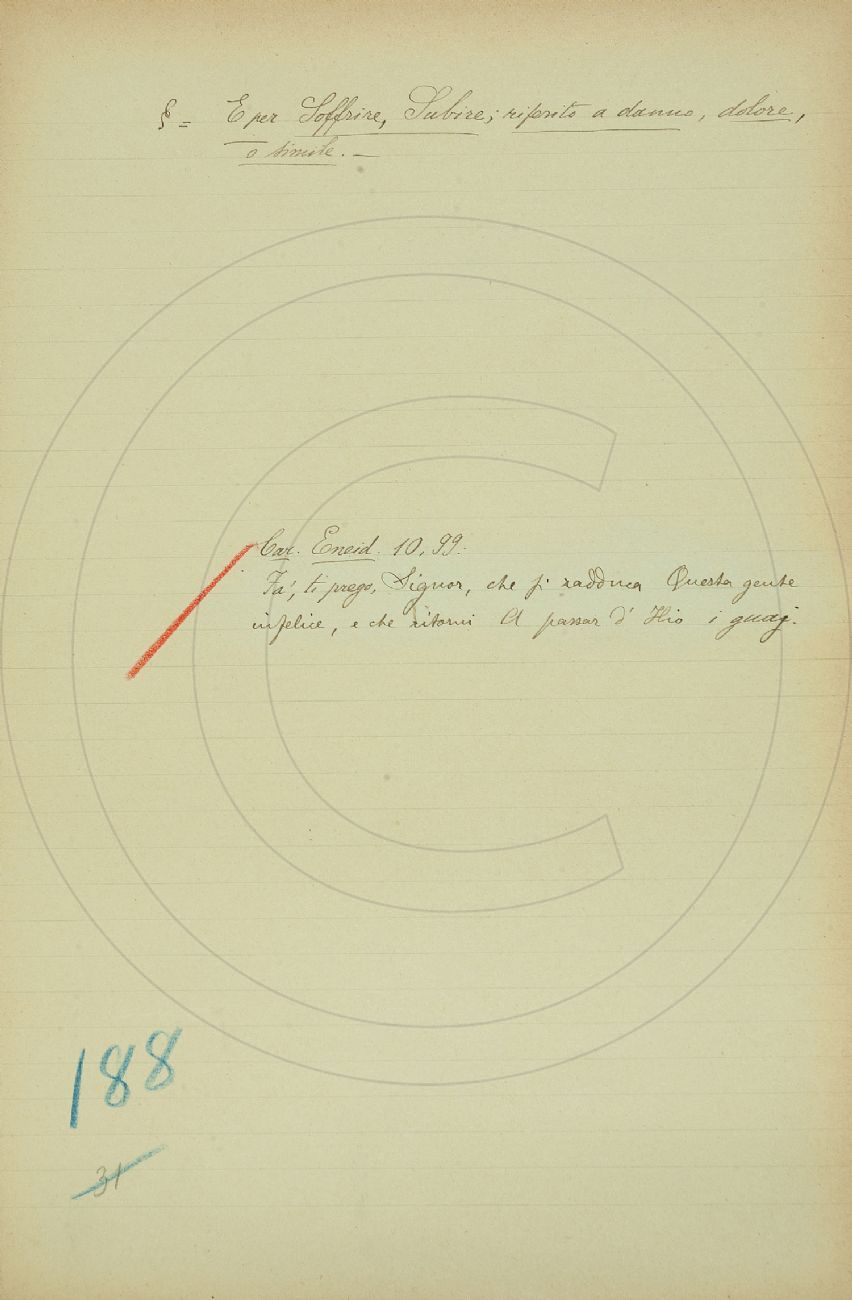 § = E per Soffrire, Subire; riferito a danno, dolore,
o simile. —
Car. Eneid. 10, 99.
Fa', ti prego, Signor, che si radduca Questa gente
infelice, e che ritorni A passar d' Ilio i guaj.
188
31